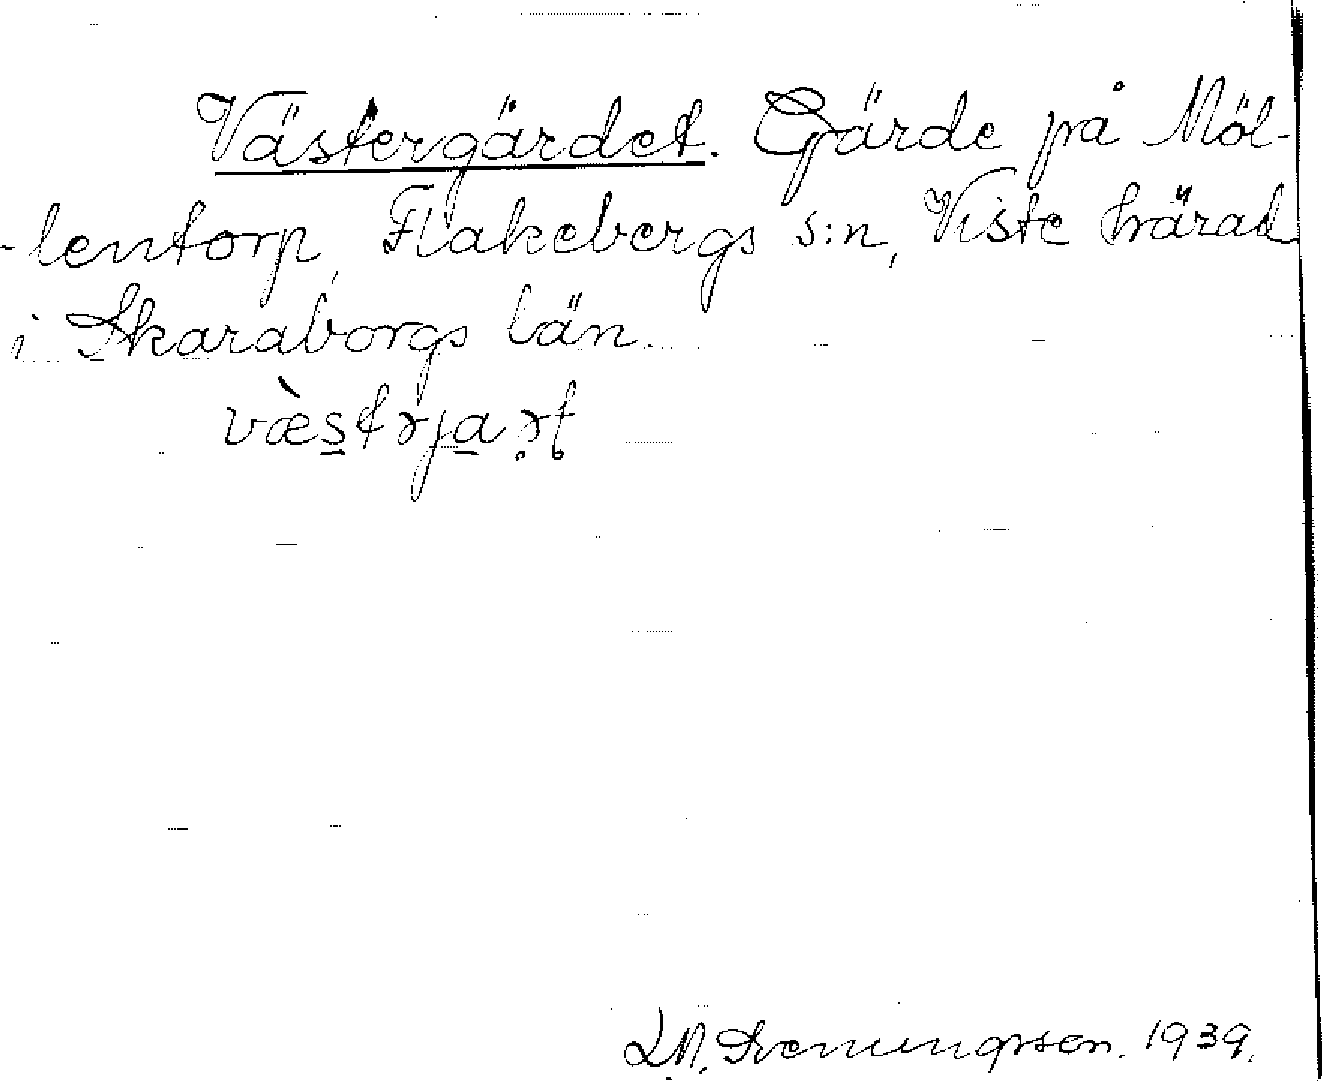 Västergärdet. Gärde på Möl-
-lentorp, Flakebergs s:n, Viste härad
i Skaraborgs län.
væ̀s̲trja̲ṛt
L.N. Svenungsson. 1939.